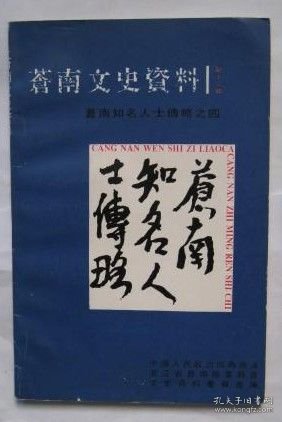 蒼南文史資料
蒼南知名人士傳略之四
CANG NAN WEN SHI ZI LIAOCA
CANG NAN ZHI MING REN SHI CHI
蒼南
知名人
士傳略
孔夫子旧书网